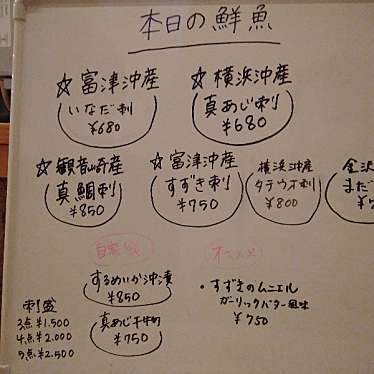 本日の鮮魚
☆富津沖産
いなだ刺
¥680
☆横浜沖産
真あじ刺
¥680
☆観音崎産
真鯛刺
¥850
☆富津沖産
すずき刺
¥750
横浜沖産
タチウオ刺
¥800
金沢
まだ
するめいか沖漬
¥850
真あじ
¥750
オススメ!
・すずきのムニエル
ガーリックバター風味
¥750
刺盛
3点¥1.500
4点¥2.000
5点¥2.500